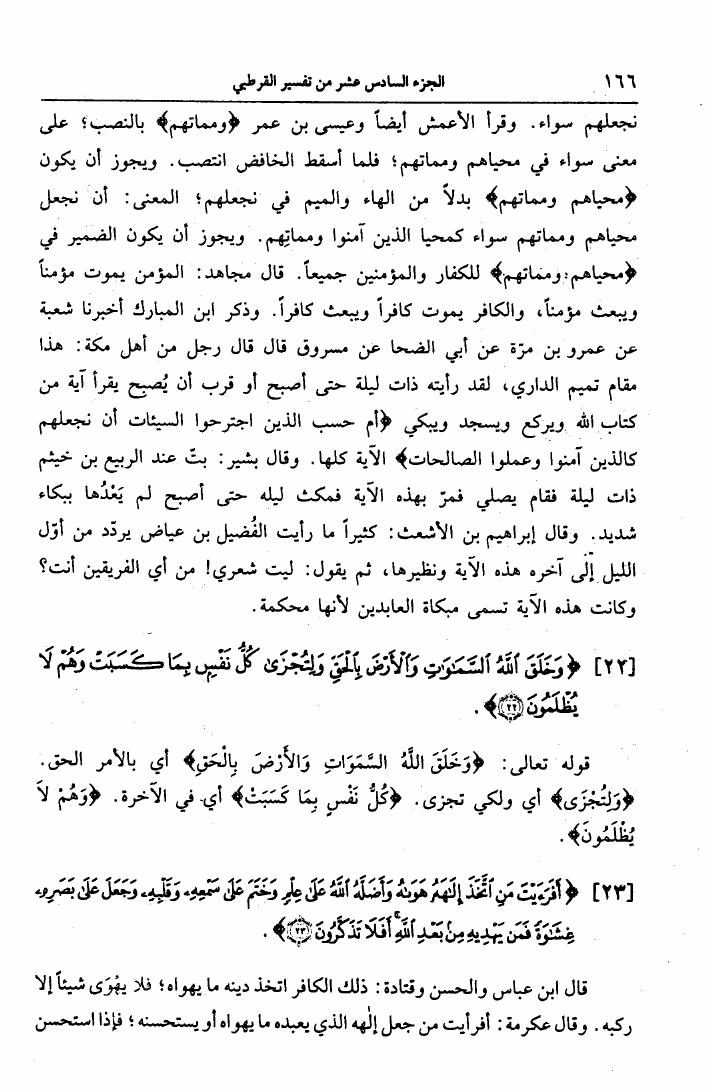 ١٦٦ الجزء السادس عشر من تفسير القرطبي
نجعلهم سواء. وقرأ الأعمش أيضاً وعيسى بن عمر ﴿ومماتهم﴾ بالنصب؛ على
معنى سواء في محياهم ومماتهم؛ فلما أسقط الخافض انتصب. ويجوز أن يكون
﴿محياهم ومماتهم﴾ بدلاً من الهاء والميم في نجعلهم؛ المعنى: أن نجعل
محياهم ومماتهم سواء كمحيا الذين آمنوا ومماتِهم. ويجوز أن يكون الضمير في
﴿محياهم ومماتهم﴾ للكفار والمؤمنين جميعاً. قال مجاهد: المؤمن يموت مؤمناً
ويبعث مؤمناً، والكافر يموت كافراً ويبعث كافراً. وذكر ابن المبارك أخبرنا شعبة
عن عمرو بن مرّة عن أبي الضحا عن مسروق قال قال رجل من أهل مكة: هذا
مقام تميم الداري، لقد رأيته ذات ليلة حتى أصبح أو قرب أن يُصبح يقرأ آية من
كتاب الله ويركع ويسجد ويبكي ﴿أم حسب الذين اجترحوا السيئات أن نجعلهم
كالذين آمنوا وعملوا الصالحات﴾ الآية كلها. وقال بشير: بتّ عند الربيع بن خيثم
ذات ليلة فقام يصلي فمرّ بهذه الآية فمكث ليله حتى أصبح لم يَعْدُها ببكاء
شديد. وقال إبراهيم بن الأشعث: كثيراً ما رأيت الفُضيل بن عياض يردّد من أوّل
الليل إلى آخره هذه الآية ونظيرها، ثم يقول: ليت شعري! من أي الفريقين أنت؟
وكانت هذه الآية تسمى مبكاة العابدين لأنها محكمة.
[٢٢] ﴿وَخَلَقَ ٱللَّهُ ٱلسَّمَٰوَٰتِ وَٱلْأَرْضَ بِٱلْحَقِّ وَلِتُجْزَىٰ كُلُّ نَفْسٍ بِمَا كَسَبَتْ وَهُمْ لَا
يُظْلَمُونَ ٢٢﴾.
قوله تعالى: ﴿وَخَلَقَ اللَّهُ السَّمَوَاتِ وَالأَرْضَ بِالْحَقِ﴾ أي بالأمر الحق.
﴿وَلِتُجْزَى﴾ أي ولكي تجزى. ﴿كُلُّ نَفْسٍ بِمَا كَسَبَتْ﴾ أي في الآخرة. ﴿وَهُمْ لاَ
يُظْلَمُونَ﴾.
[٢٣] ﴿أَفَرَءَيْتَ مَنِ ٱتَّخَذَ إِلَٰهَهُۥ هَوَىٰهُ وَأَضَلَّهُ ٱللَّهُ عَلَىٰ عِلْمٍ وَخَتَمَ عَلَىٰ سَمْعِهِۦ وَقَلْبِهِۦ وَجَعَلَ عَلَىٰ بَصَرِهِۦ
غِشَٰوَةً فَمَن يَهْدِيهِ مِنۢ بَعْدِ ٱللَّهِۚ أَفَلَا تَذَكَّرُونَ ٢٣﴾.
قال ابن عباس والحسن وقتادة: ذلك الكافر اتخذ دينه ما يهواه؛ فلا يهْوَى شيئاً إلا
ركبه. وقال عكرمة: أفرأيت من جعل إلٰهه الذي يعبده ما يهواه أو يستحسنه؛ فإذا استحسن